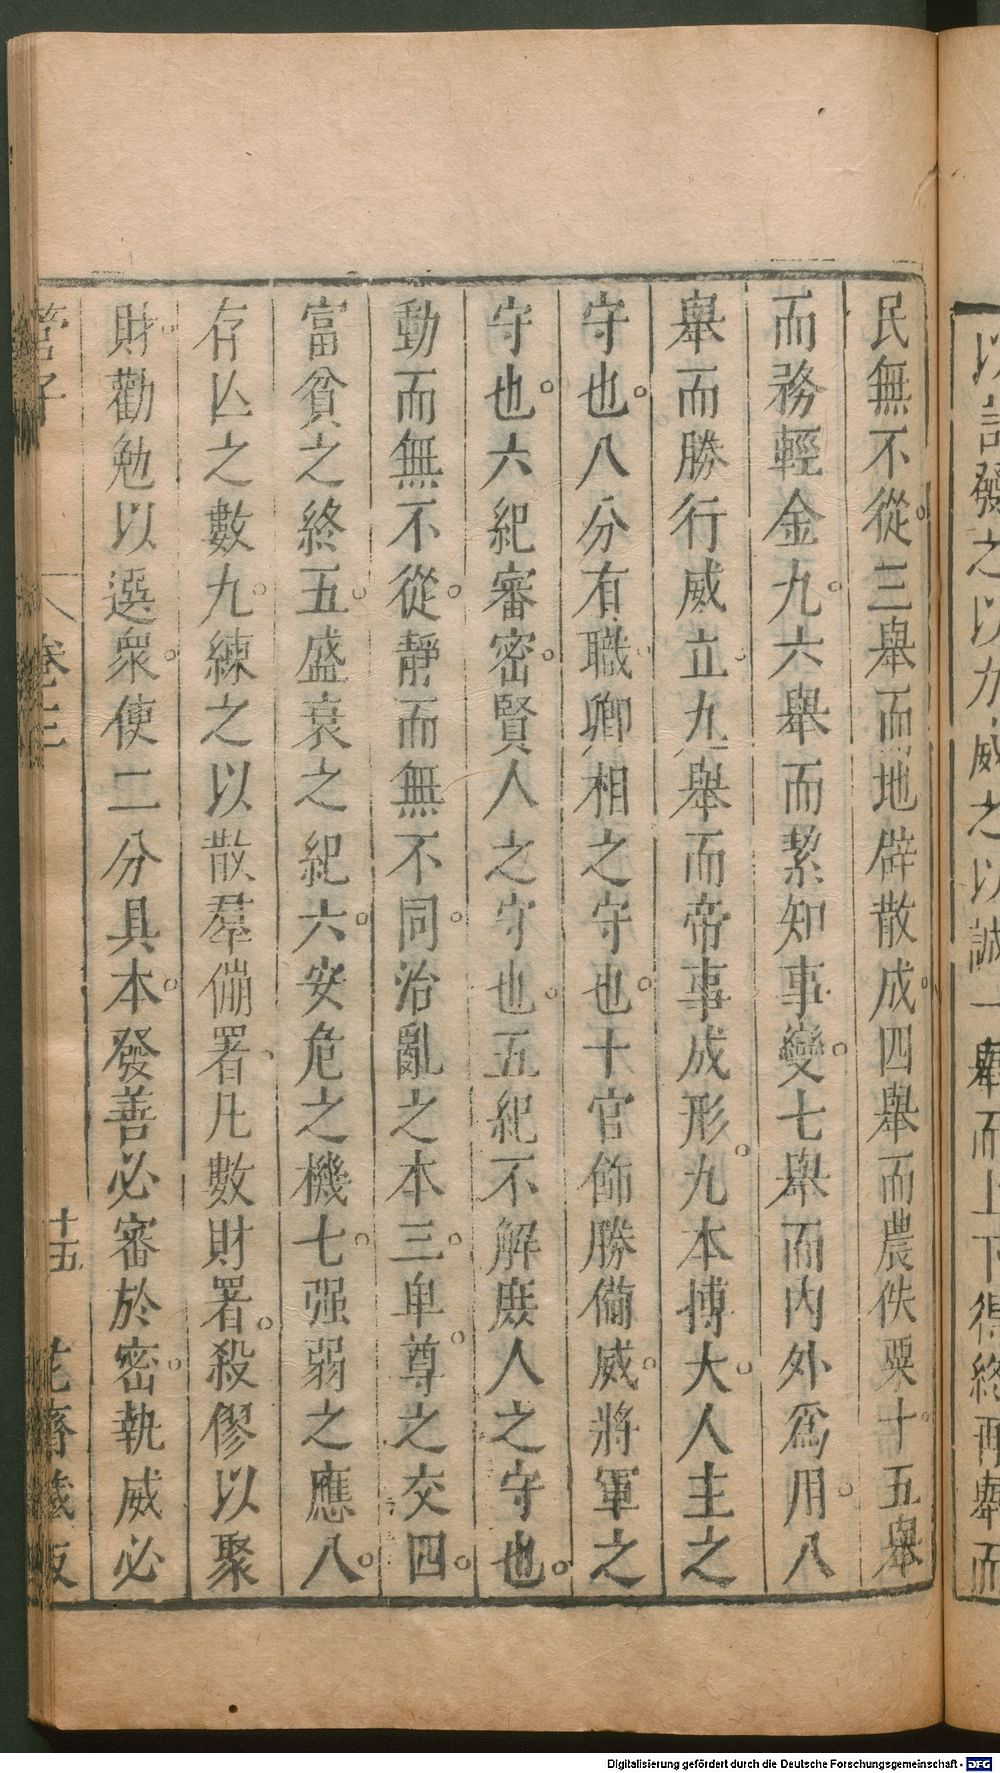 以計發之以力威之以誠一舉而上下得終再舉而
民無不從三舉而地辟散成四舉而農佚粟十五舉
而務輕金九六舉而絜知事變七舉而內外爲用八
舉而勝行威立九舉而帝事成形九本搏大人主之
守也八分有職卿相之守也十官飾勝備威將軍之
守也六紀審密賢人之守也五紀不解庶人之守也
動而無不從靜而無不同治亂之本三卑尊之交四
富貧之終五盛衰之紀六安危之機七强弱之應八
存亾之數九練之以散羣傰署凡數財署殺僇以聚
財勸勉以選衆使二分具本發善必審於密執威必
管子 卷三 十五 花齋藏板
Digitalisierung gefördert durch die Deutsche Forschungsgemeinschaft - DFG